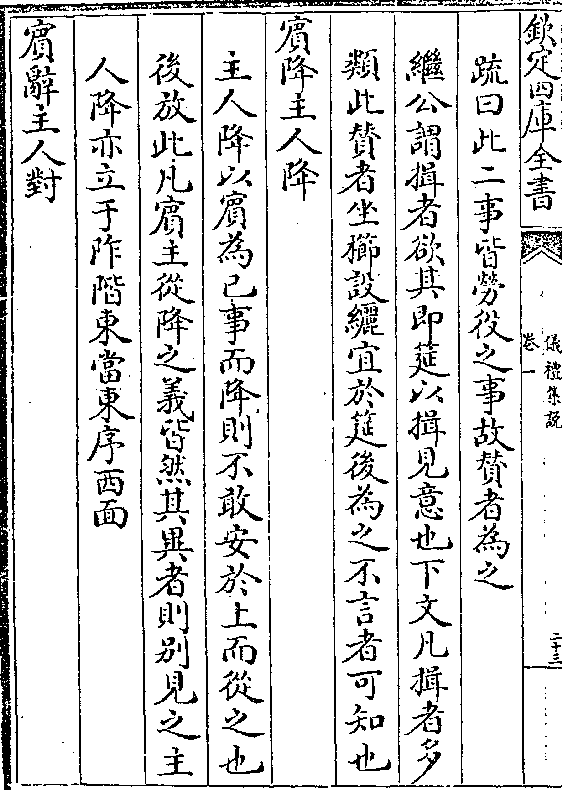 欽定四庫全書
儀禮集說
卷一
二十三
疏曰此二事皆勞役之事故贊者為之
繼公謂揖者欲其即筵以揖見意也下文凡揖者多
類此贊者坐櫛設纚宜於筵後為之不言者可知也
賓降主人降
主人降以賓為已事而降則不敢安於上而從之也
後放此凡賓主從降之義皆然其異者則別見之主
人降亦立于阼階東當東序西面
賓辭主人對